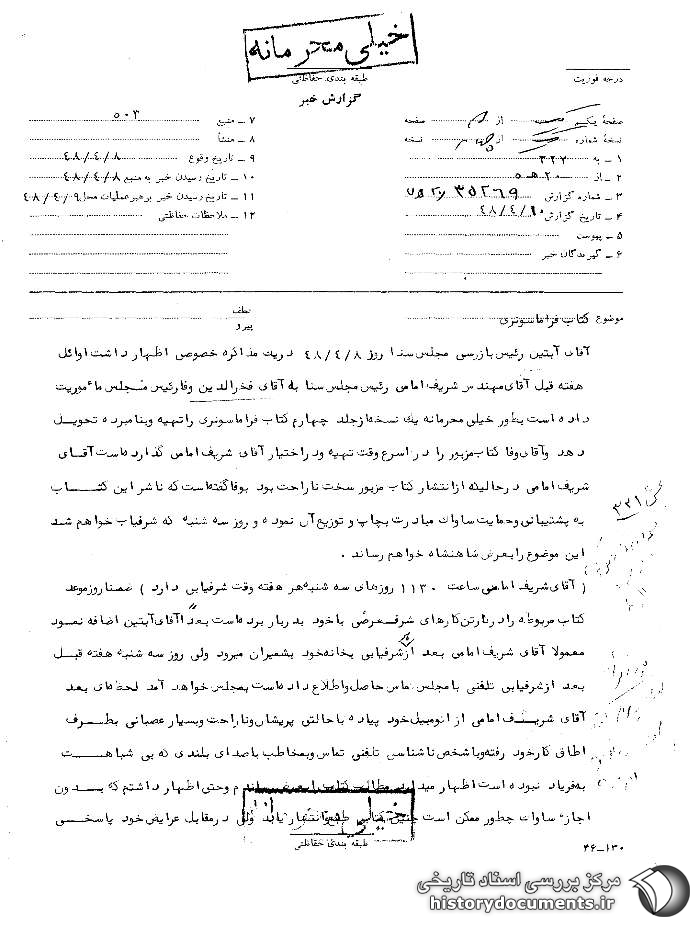 خیلی محرمانه
طبقه بندی حفاظتی
گزارش خبر
درجه فوریت
صفحهٔ یکم از صفحه
نسخهٔ شماره از نسخه
۱ ـ به ۳۲۲
۲ ـ از ۲۰ ه ۵
۳ ـ شماره گزارش ۳۵۲۶۹
۴ ـ تاریخ گزارش ۴۸/۴/۱۰
۵ ـ پیوست
۶ ـ گیرندگان خبر
۷ ـ منبع ۵۰۳
۸ ـ منشأ
۹ ـ تاریخ وقوع ۴۸/۴/۸
۱۰ ـ تاریخ رسیدن خبر به منبع ۴۸/۴/۸
۱۱ ـ تاریخ رسیدن خبر برهبر عملیات محل ۴۸/۴/۹
۱۲ ـ ملاحظات حفاظتی
موضوع کتاب فراماسونری
عطف
پیرو
آقای آبتین رئیس بازرسی مجلس سنا روز ۴۸/۴/۸ در یک مذاکره خصوصی اظهار داشت اوائل
هفته قبل آقای مهندس شریف امامی رئیس مجلس سنا به آقای فخرالدین وفا رئیس مجلس مأموریت
داده است بطور خیلی محرمانه یک نسخه از جلد چهارم کتاب فراماسونری را تهیه و بنامبرده تحویل
دهد و آقای وفا کتاب مزبور را در اسرع وقت تهیه و در اختیار آقای شریف امامی گذارده است آقای
شریف امامی در حالیکه از انتشار کتاب مزبور سخت ناراحت بود بوفا گفته است که ناشر این کتاب
به پشتیبانی و حمایت ساواک مبادرت بچاپ و توزیع آن نموده و روز سه شنبه که شرفیاب خواهم شد
این موضوع را بعرض شاهنشاه خواهم رساند .
( آقای شریف امامی ساعت ۱۱۳۰ روزهای سه شنبه هر هفته وقت شرفیابی دارد ) ضمنا روز موعد
کتاب مربوطه را در کارتن کارهای شرفعرضی با خود بدربار برده است بعداً آقای آبتین اضافه نمود
معمولا آقای شریف امامی بعد از شرفیابی بخانه خود بشمیران میرود ولی روز سه شنبه هفته قبل
بعد از شرفیابی تلفنی با مجلس تماس حاصل و اطلاع داده است بمجلس خواهد آمد لحظه‌ای بعد
آقای شریف امامی از اتومبیل خود پیاده با حالتی پریشان و ناراحت و بسیار عصبانی بطرف
اطاق کار خود رفته و با شخص ناشناسی تلفنی تماس و بمخاطب با صدای بلندی که بی شباهت
به فریاد نبوده است اظهار میدارد مطالب کتاب را بعرض رساندم و حتی اظهار داشتم که بدون
اجازه ساواک چطور ممکن است چنین کتابی طبع و انتشار یابد ولی در مقابل عرایض خود پاسخی
خیلی محرمانه
طبقه بندی حفاظتی
۴۶ـ۱۳۰
مرکز بررسی اسناد تاریخی
historydocuments.ir